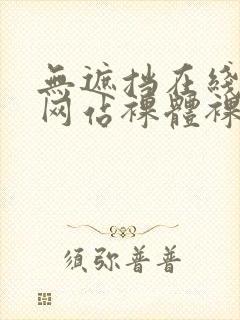 無遮挡在綫
网佔裸體裸
須弥普普